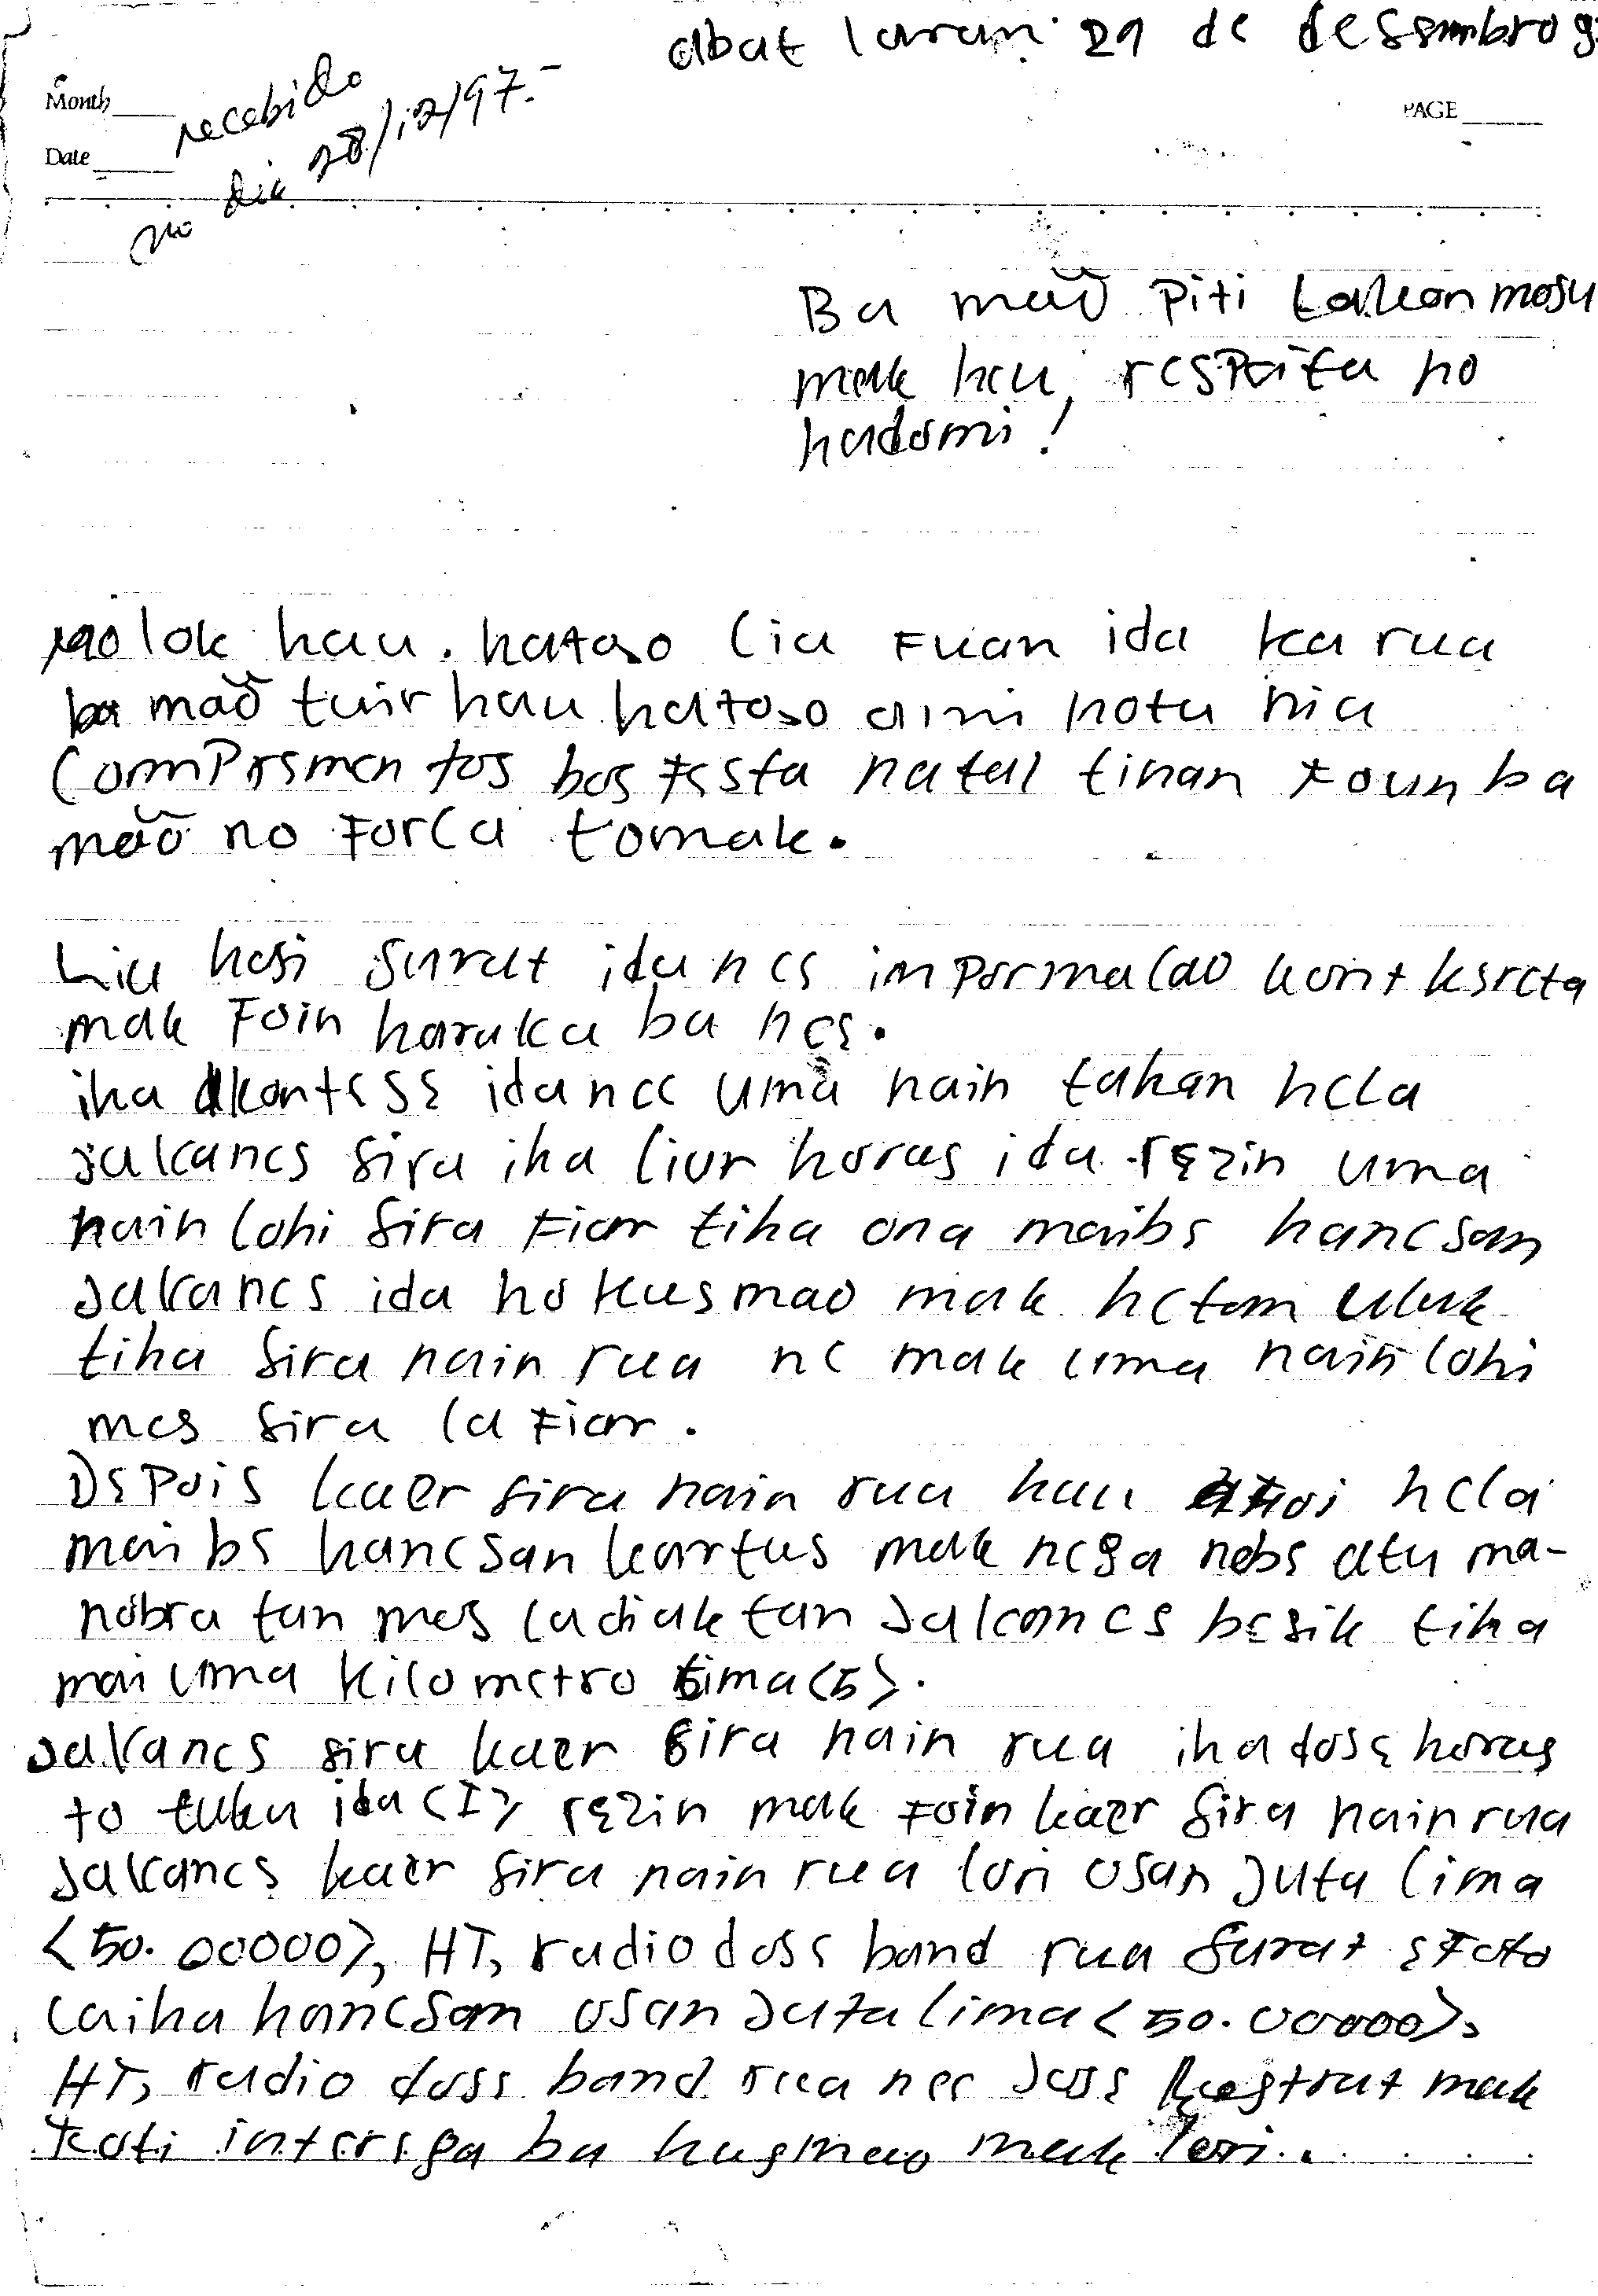 abat laran 21 de desembro 9
Month
recebido
no dia 28/12/97.-
PAGE
Date
Ba maũ Piti takan mosu
mak hau, respeita no
hadomi!
molok hau. hatoso lia Fuan ida ka rua
ba maõ tuir hau hatoso aimi hotu nia
ComPrementos bos Festa natal tinan Foun ba
maõ no Forca tomak.
Liu hosi surat ida nee inpormacao kont ksreta
mak Foin haruka ba nee.
iha kontese ida nee uma nain takan hela
jakanes sira iha liur horas ida rezin uma
nain lohi sira Fiar tiha ona maibe hanesan
jakanes ida ho kusmao mak hetam uluk
tiha sira nain rua ne mak uma nain lohi
mes sira la Fiar.
DePois kaer sira nain rua hau hoi hela
maibe hanesan kartus mak nega nebe atu ma-
nobra tan mes ladiak tan jalcanes besik tiha
mai uma kilometro lima <5>.
jakanes sira kaer sira nain rua iha dose horas
to tuku ida <I> rezin mak Foin kaer sira nain rua
jakanes kaer sira nain rua lori osan juta lima
<50.00000>, HT, radio dose band rua surat e Foto
laiha hanesan osan juta lima <50.00000>,
HT, radio dose band rua nee jose mak
Foti interega ba kusmao mak lori.